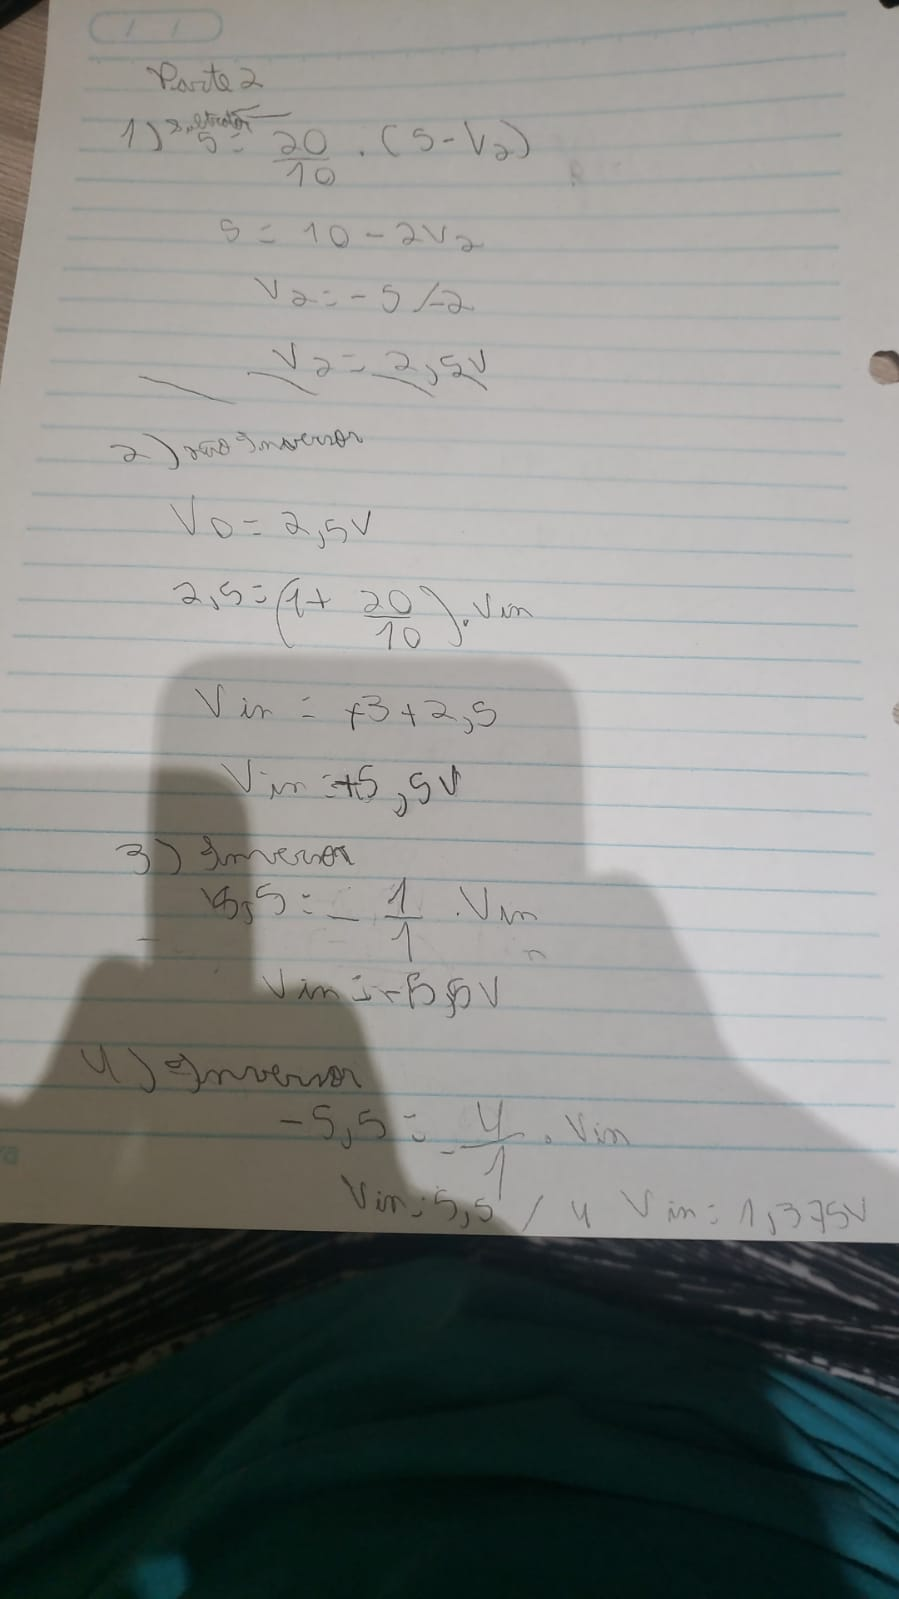 Parte 2
1) Subtrator
5 = 20/10 . (5 - V2)
5 = 10 - 2V2
V2 = -5/-2
V2 = 2,5V
2) não Inversor
Vo = 2,5V
2,5 = (1 + 20/10) . Vin
Vin = +3 + 2,5
Vin = +5,5V
3) Inversor
5,5 = - 1/1 . Vin
Vin = -5,5V
4) Inversor
-5,5 = - 4/1 . Vin
Vin = 5,5 / 4 Vin = 1,375V